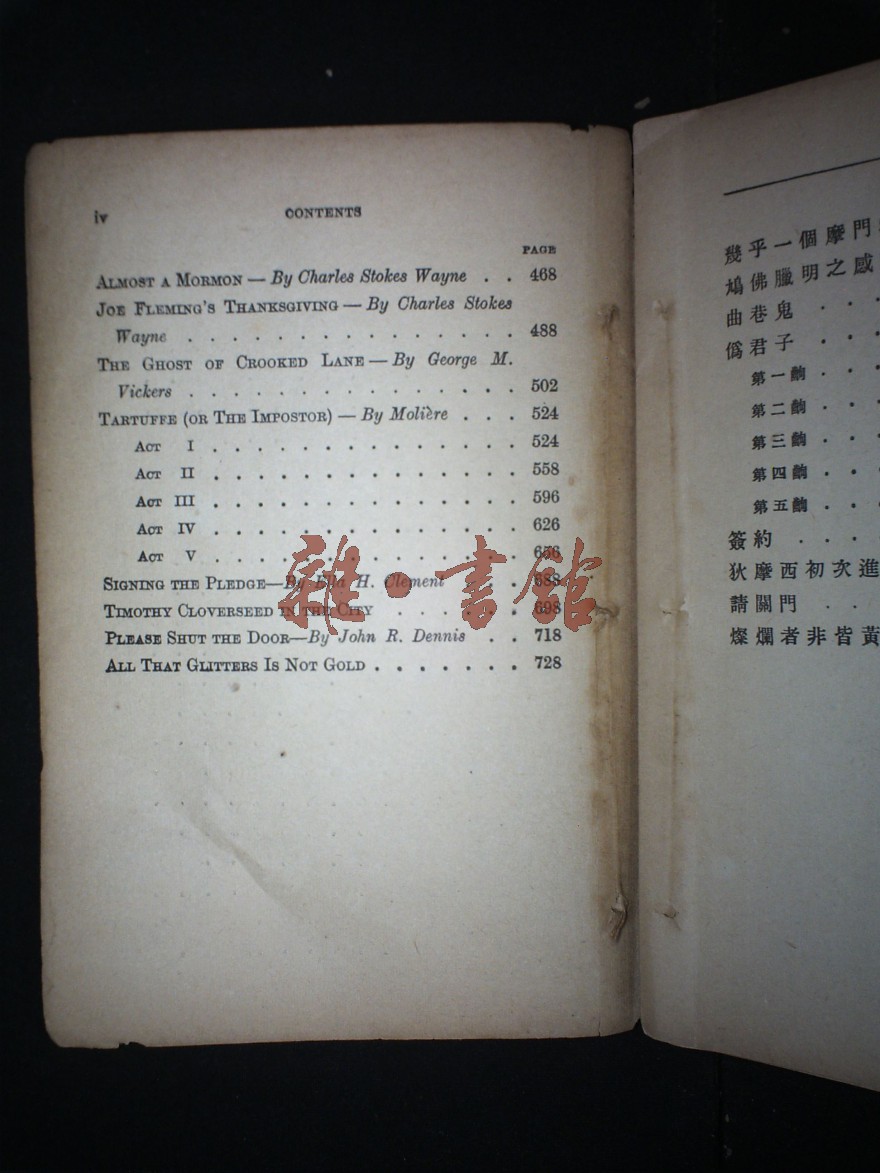 iv CONTENTS
PAGE
ALMOST A MORMON — By Charles Stokes Wayne . . 468
JOE FLEMING'S THANKSGIVING — By Charles Stokes
Wayne . . . . . . . . . . . . . . . 488
THE GHOST OF CROOKED LANE — By George M.
Vickers . . . . . . . . . . . . . . . 502
TARTUFFE (OR THE IMPOSTOR) — By Molière . . . 524
ACT I . . . . . . . . . . . . . . 524
ACT II . . . . . . . . . . . . . . 558
ACT III . . . . . . . . . . . . . . 596
ACT IV . . . . . . . . . . . . . . 626
ACT V . . . . . . . . . . . . . . 656
SIGNING THE PLEDGE—By Ella H. Clement . . . 688
TIMOTHY CLOVERSEED IN THE CITY . . . . . . 698
PLEASE SHUT THE DOOR—By John R. Dennis . . 718
ALL THAT GLITTERS IS NOT GOLD . . . . . . . 728
雜·書館
幾乎一個摩門
鳩佛臘明之感
曲巷鬼 . . .
僞君子 . . .
第一齣 . . .
第二齣 . . .
第三齣 . . .
第四齣 . . .
第五齣 . . .
簽約 . . . .
狄摩西初次進
請關門 . . .
燦爛者非皆黃